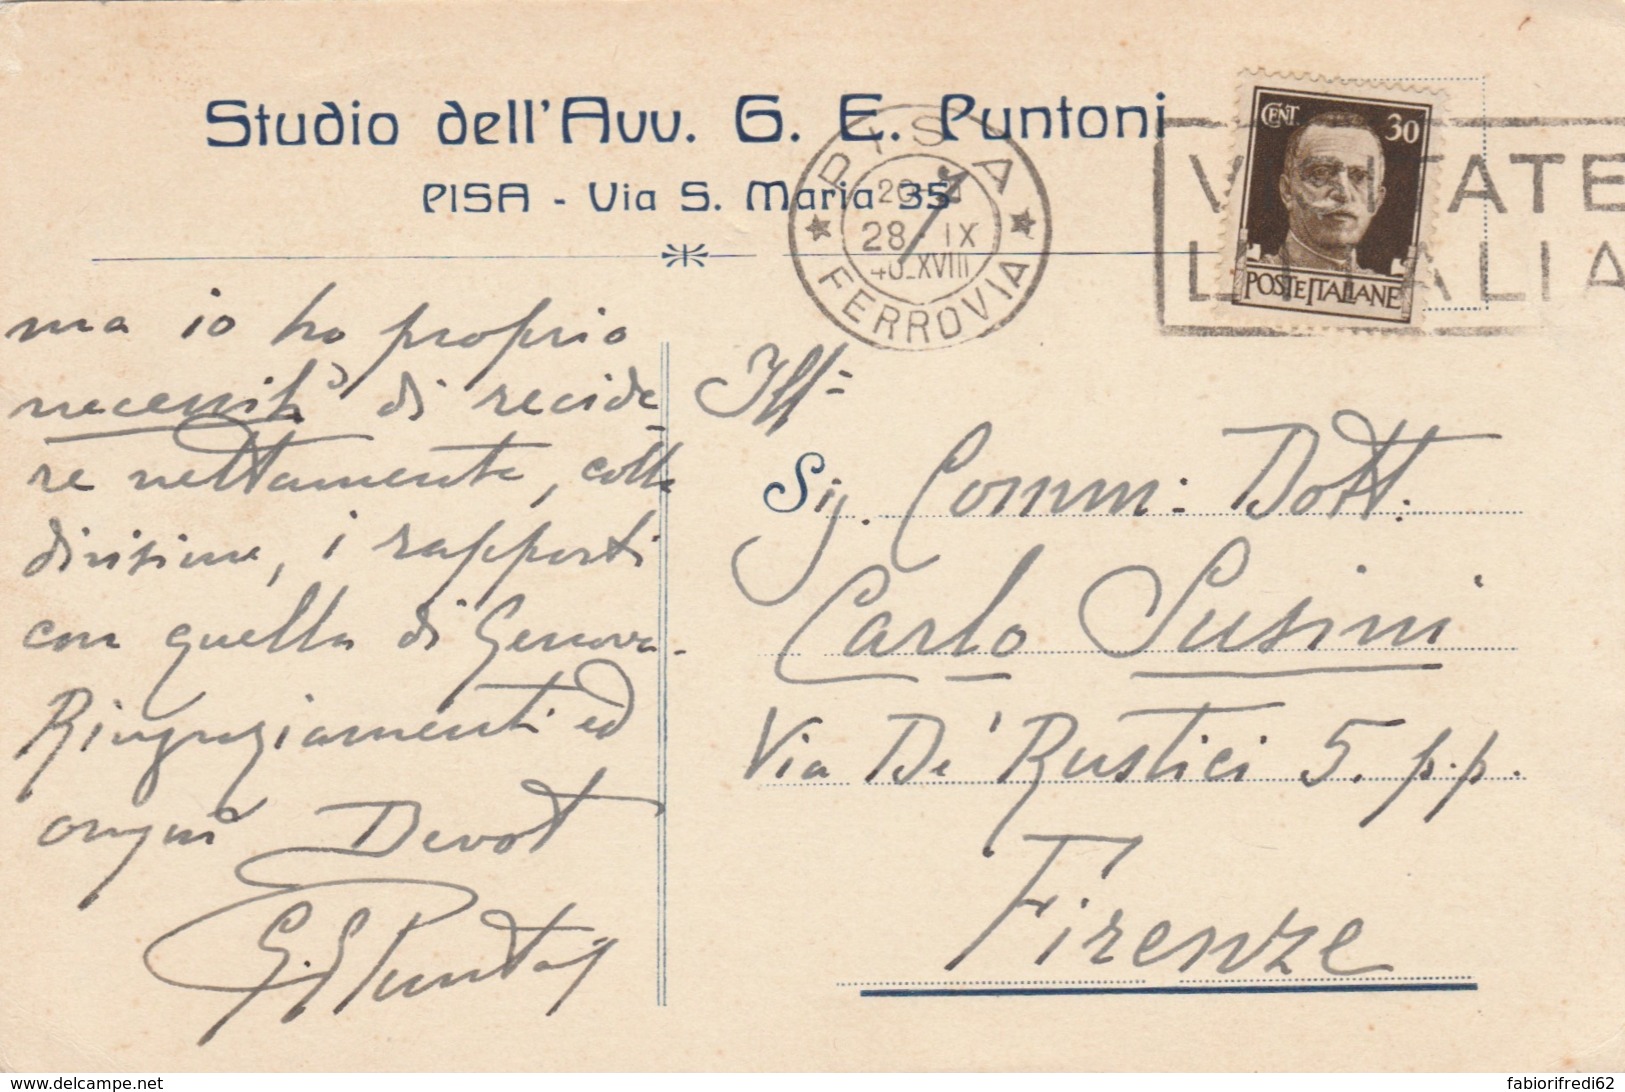 Studio dell'Avv. G. E. Puntoni
PISA - Via S. Maria 35
PISA
28 · IX
40 XVIII
FERROVIA
VISITATE
L'ITALIA
CENT 30
POSTE ITALIANE
ma io ho proprio
necessità di recide
re nettamente, colla
divisione, i rapporti
con quella di Genova.
Ringraziamenti ed
ossequi Devot
G. E. Puntoni
Ill=
Sig. Comm: Dott.
Carlo Susini
Via De' Rustici 5. p.p.
Firenze
www.delcampe.net
fabiorifredi62